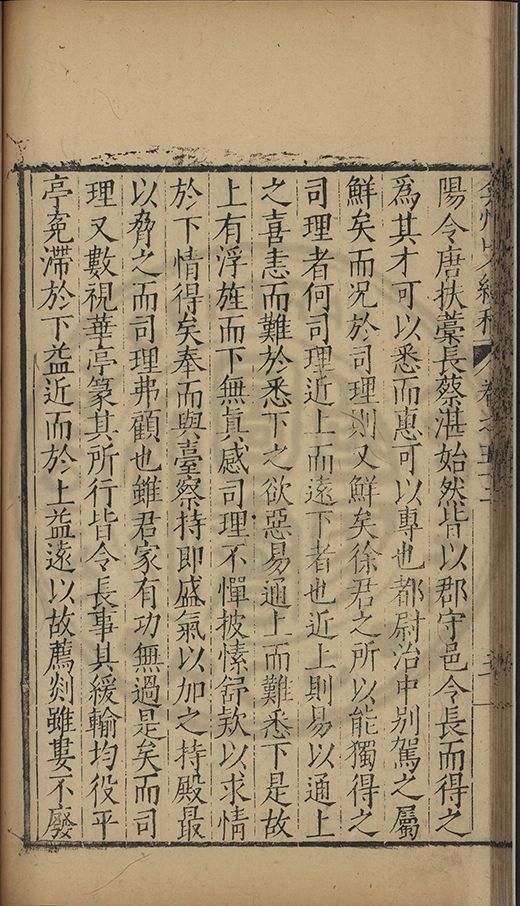 陽令唐扶藁長蔡湛始然皆以郡守邑令長而得之
為其才可以悉而惠可以專也都尉治中別駕之屬
鮮矣而况於司理則又鮮矣徐君之所以能獨得之
司理者何司理近上而遠下者也近上則易以通上
之喜恚而難於悉下之欲惡易通上而難悉下是故
上有浮旌而下無眞感司理不憚披愫舒欵以求情
於下情得矣奉而與臺察持即盛氣以加之持殿最
以脅之而司理弗顧也雖君家有功無過是矣而司
理又數視華亭篆其所行皆令長事具緩輸均役平
亭寃滯於下益近而於上益遠以故薦剡雖婁不廢